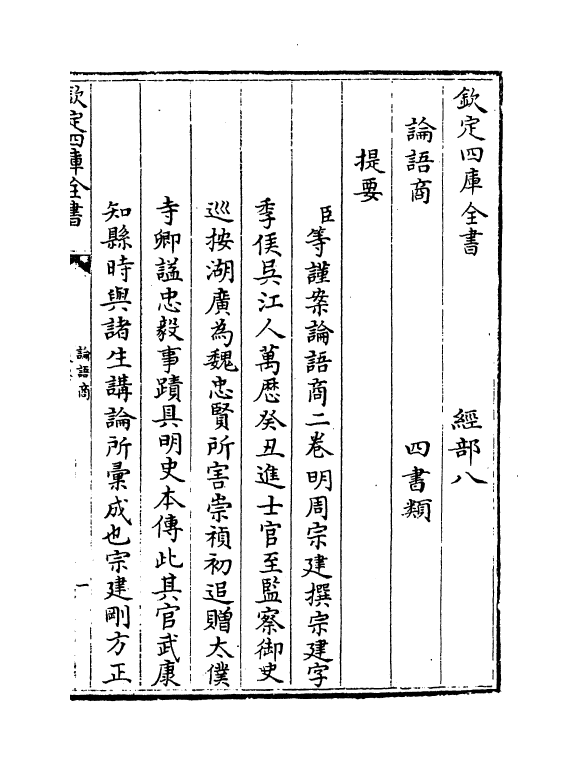 欽定四庫全書　經部八
論語商　四書類
提要
臣等謹案論語商二卷明周宗建撰宗建字
季侯吳江人萬歴癸丑進士官至監察御史
巡按湖廣為魏忠賢所害崇禎初追贈太僕
寺卿諡忠毅事蹟具明史本傳此其官武康
知縣時與諸生講論所彙成也宗建剛方正
欽定四庫全書
論語商
一